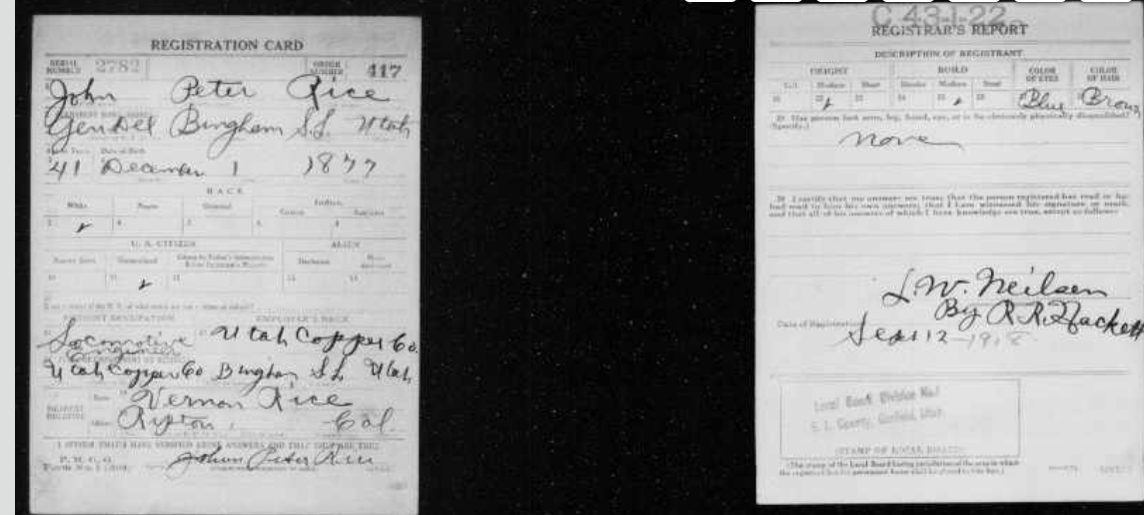 REGISTRATION CARD
SERIAL NUMBER 2782 ORDER NUMBER 417
John Peter Rice
Gen Del Bingham S.L. Utah
Date of Birth
41 December 1 1877
RACE
White
U. S. CITIZEN ALIEN
Native Born Naturalized Declarant
PRESENT OCCUPATION EMPLOYER'S NAME
Locomotive Engineer Utah Copper Co.
Utah Copper Co Bingham S.L. Utah
NEAREST RELATIVE Name Vernon Rice
Address Ripton, Cal.
I AFFIRM THAT I HAVE VERIFIED ABOVE ANSWERS AND THAT THEY ARE TRUE
P. M. G. O.
Form No. 1
John Peter Rice
C 43-1-22
REGISTRAR'S REPORT
DESCRIPTION OF REGISTRANT
HEIGHT BUILD COLOR OF EYES COLOR OF HAIR
Tall Medium Short Slender Medium Stout
Blue Brown
29 Has person lost arm, leg, hand, eye, or is he obviously physically disqualified?
(Specify.)
none
30 I certify that my answers are true; that the person registered has read or has
had read to him his own answers; that I have witnessed his signature or mark,
and that all of his answers of which I have knowledge are true, except as follows:
L. W. Neilsen
By R. R. Hackett
Date of Registration Sept 12-1918
Local Board Division No. 1
S. L. County, Garfield, Utah
(STAMP OF LOCAL BOARD)
(The stamp of the Local Board having jurisdiction of the area in which
the registrant has his permanent home shall be placed in this box.)